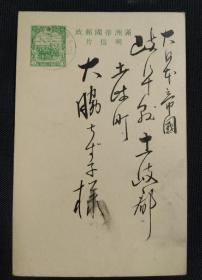 滿洲帝國郵政
明信片
大日本帝國
岐阜縣土岐郡
土岐町
大脇
様